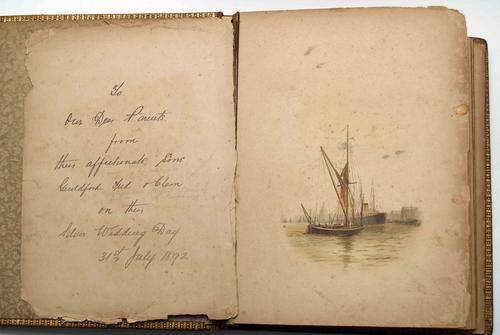 To
Our Dear Parents
from
their affectionate Sons
Guildford Fred & Clem
on their
Silver Wedding Day
31st July 1892